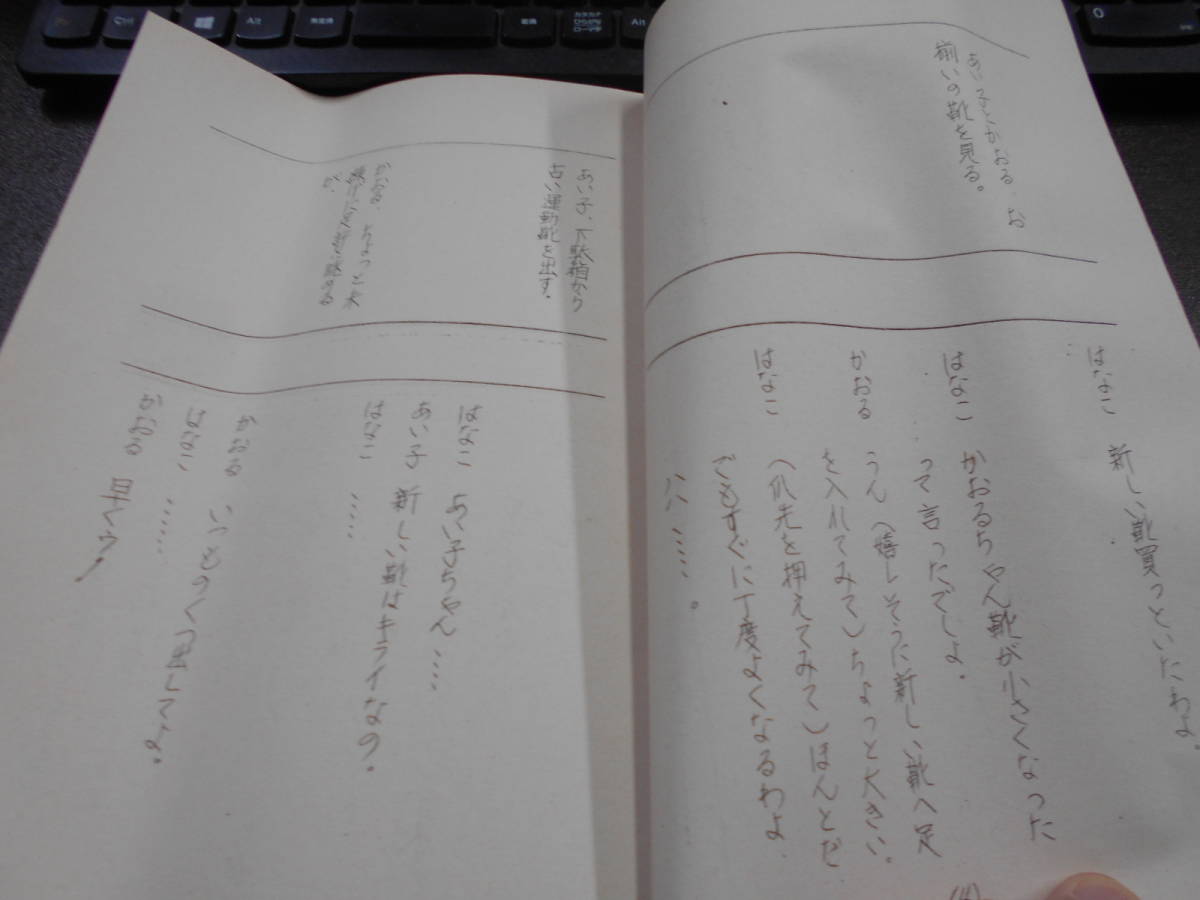 あい子とかおる、お
揃いの靴を見る。
はなこ 新しい靴買っといたわよ。
はなこ かおるちゃん靴が小さくなった
って言ったでしょ。
かおる うん(嬉しそうに新しい靴へ足
を入れてみて)ちょっと大きい。
はなこ (爪先を押えてみて)ほんとだ
でもすぐに丁度よくなるわよ
……。
あい子、下駄箱から
古い運動靴を出す。
かおる、ちょっと
はなこ あい子ちゃん……
あい子 新しい靴はキライなの。
はなこ ……
かおる
はなこ ……
かおる 早く
Ctrl
Alt
無変換
変換
カタカナ
ひらがな
ローマ字
Alt
0